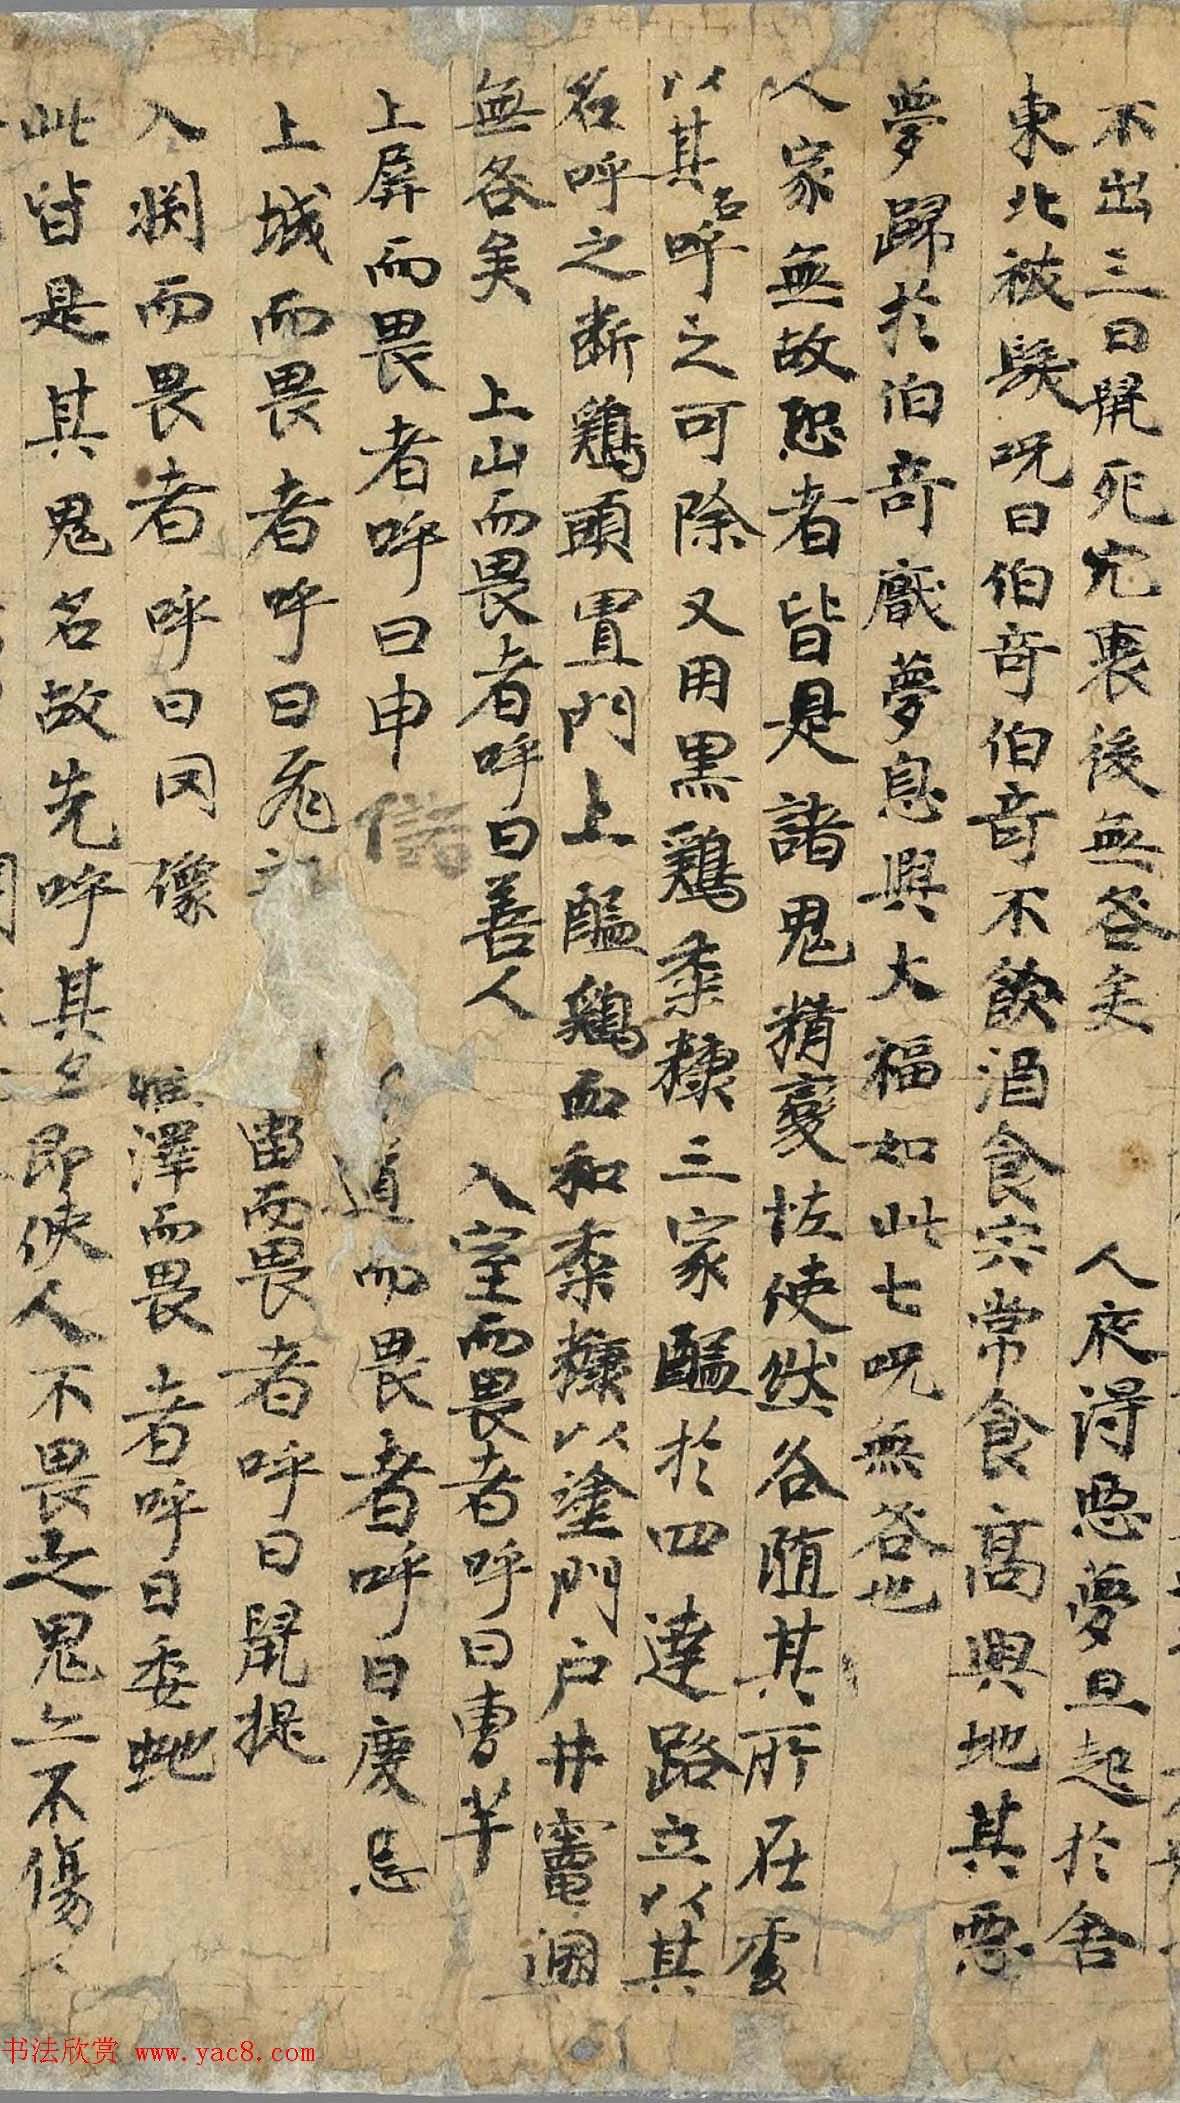 不出三日鼠死穴裏後無咎矣　人夜得惡夢旦起於舍
東北被髮呪曰伯奇伯奇不飲酒食宍常食高興地其惡
夢歸於伯奇厭夢息興大福如此七呪無咎也
人家無故恐者皆是諸鬼精變怪使然各隨其所在處
以其名呼之可除又用黑鷄黍糠三家醞於四達路立以其
名呼之斷鷄頭置門上醞鷄血和黍糠以塗門戶井竈溷
無咎矣　上山而畏者呼曰善人　入室而畏者呼曰曹芊
上屏而畏者呼曰申　道而畏者呼曰慶忌
上城而畏者呼曰飛　而畏者呼曰鼠提
入渕而畏者呼曰罔像　澤而畏者呼曰委虵
此皆是其鬼名故先呼其名即使人不畏之鬼亦不傷
书法欣赏 www.yac8.com